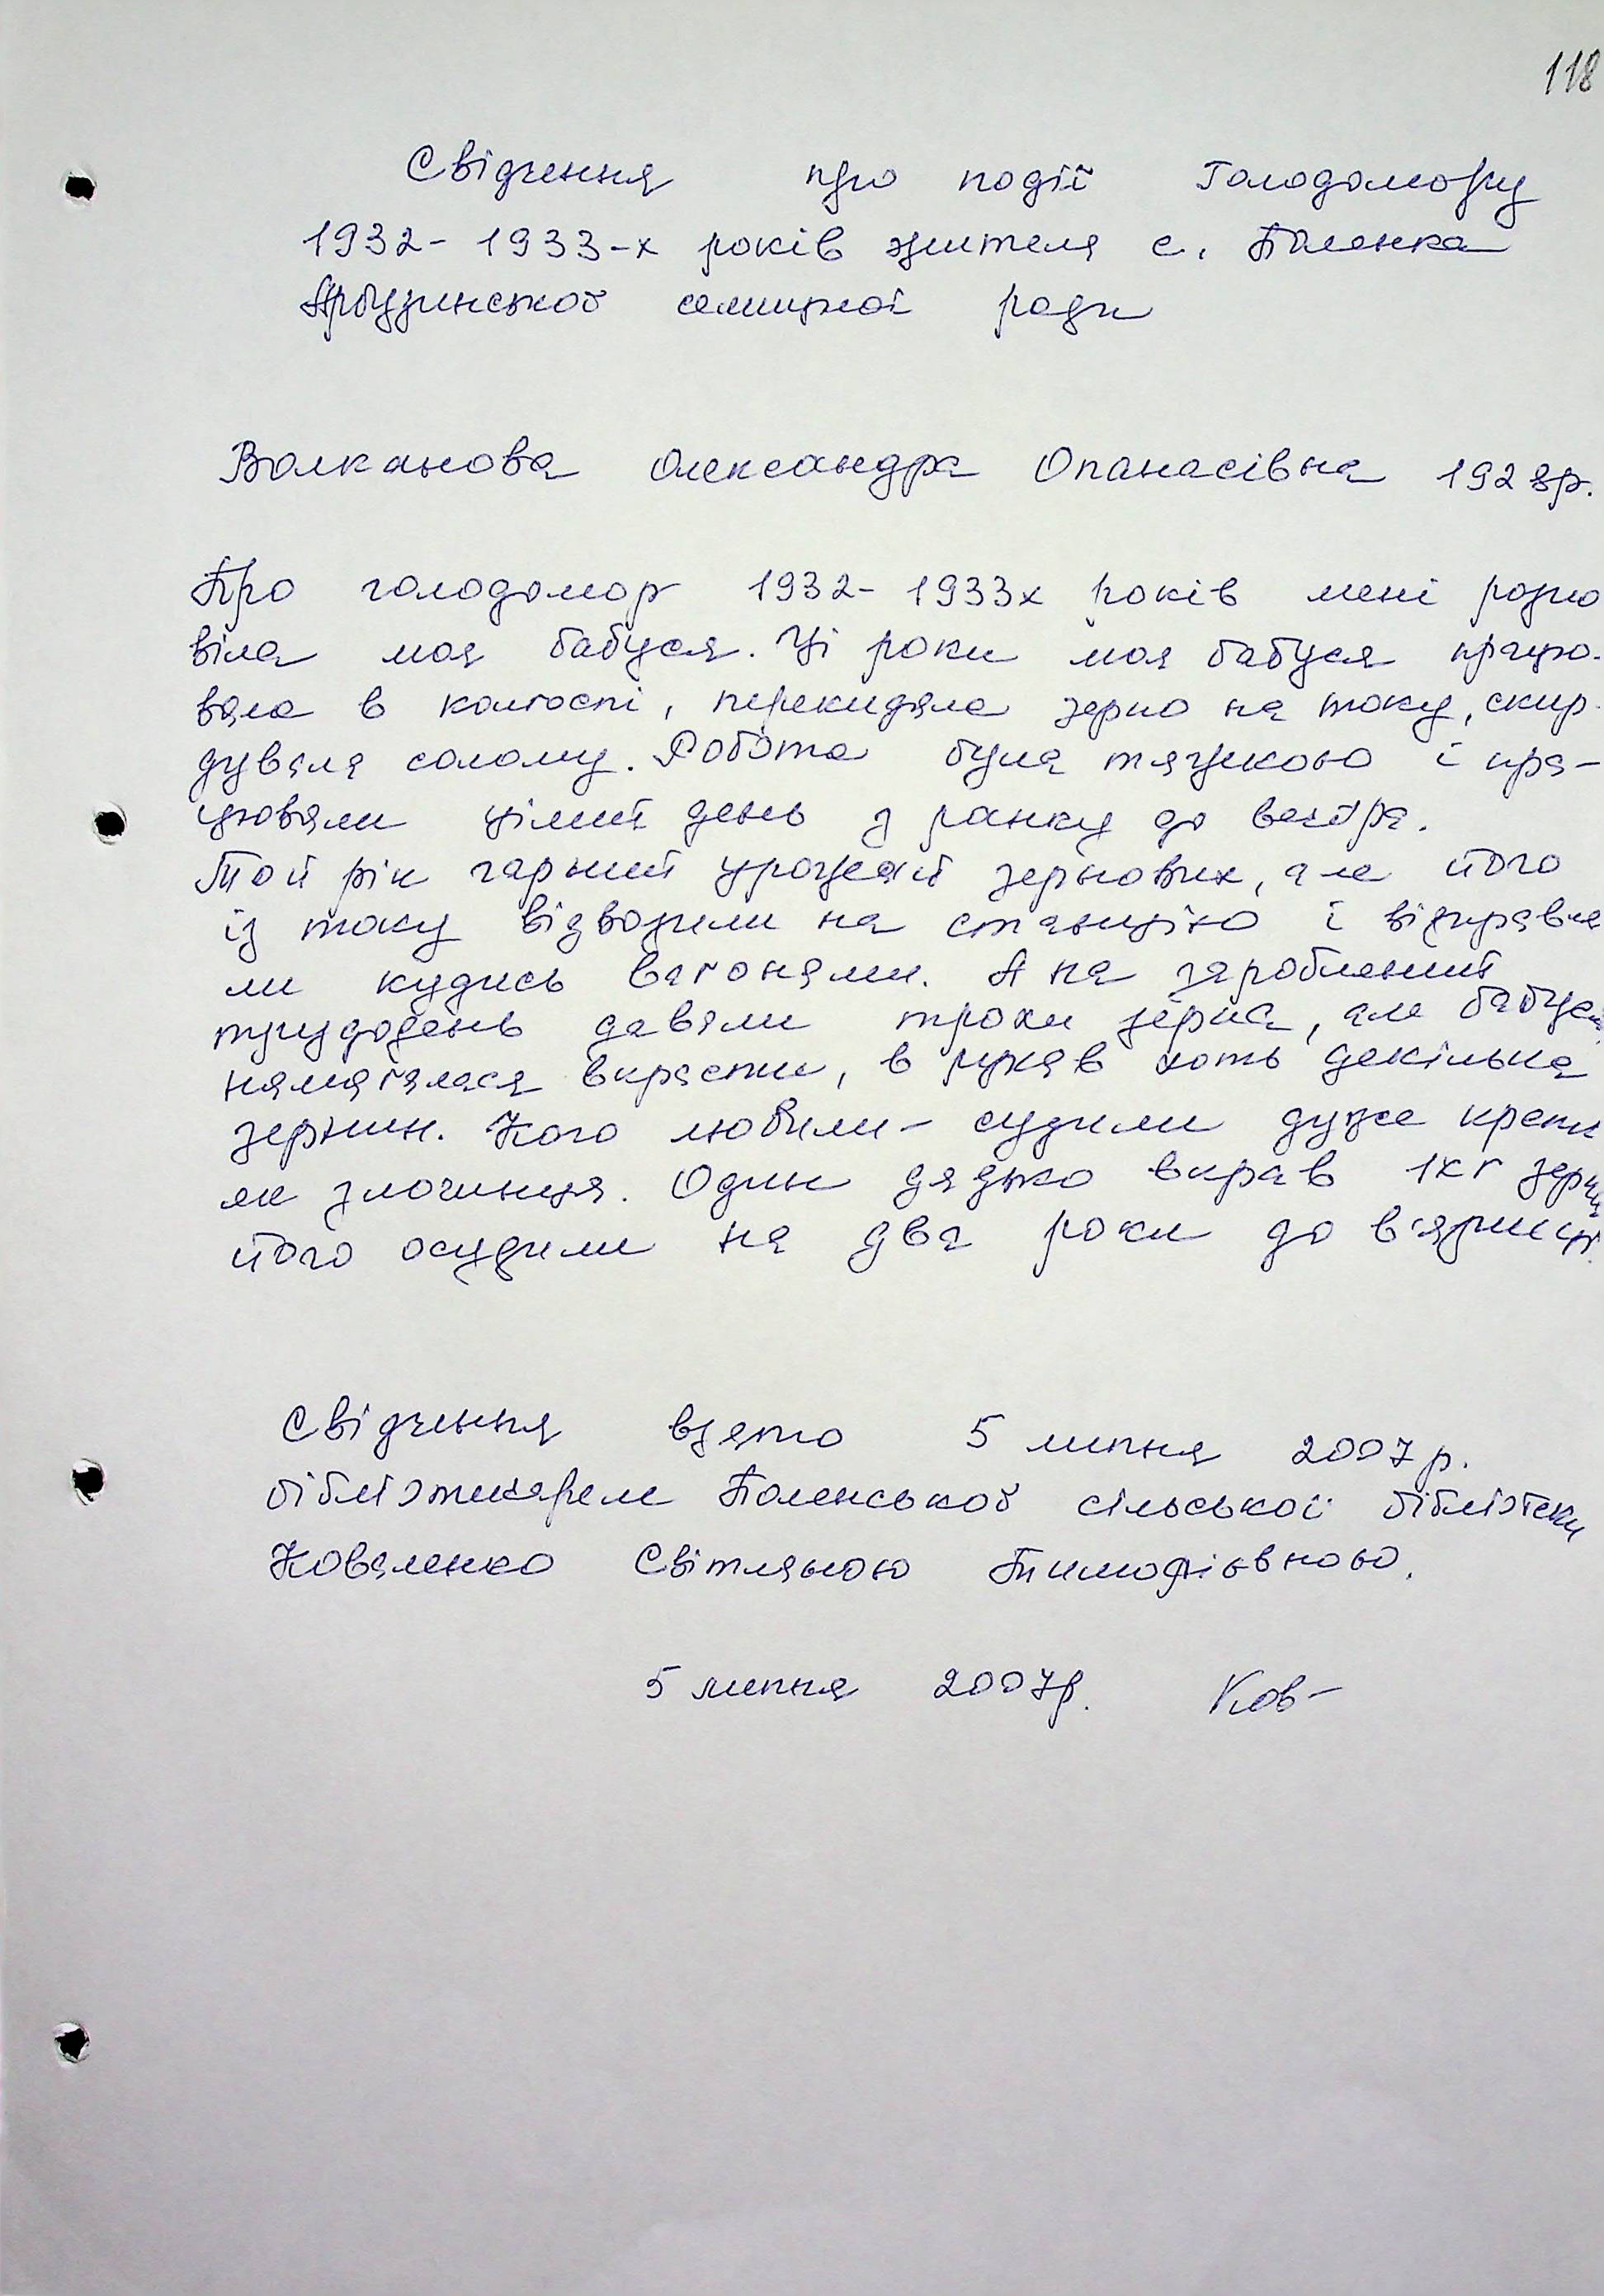 118
Свідчення про події Голодомору
1932- 1933-х років жителя с. Полянка
Арбузинської селищної ради
Волканова Олександра Опанасівна 1928р.
Про голодомор 1932- 1933х років мені розпо
віла моя бабуся. Ці роки моя бабуся працю-
вала в колгоспі, перекидала зерно на току, скир-
дувала солому. Робота була тяжкою і пра-
цювали цілий день з ранку до вечора.
Той рік гарний урожай зернових, але його
із току відвозили на станцію і відправля
ли кудись вагонами. А на зароблений
трудодень давали трохи зерна, але бабуся
намагалася вкрасти, в рукав хоть декілька
зернин. Кого ловили - судили дуже
як злочинця. Один дядько вкрав 1кг
його осудили на два роки до в'язниці.
Свідчення взято 5 липня 2007р.
бібліотикарем Поленської сільської бібліотеки
Коваленко Світланою Тимофіївною.
5 липня 2007р. Ков-